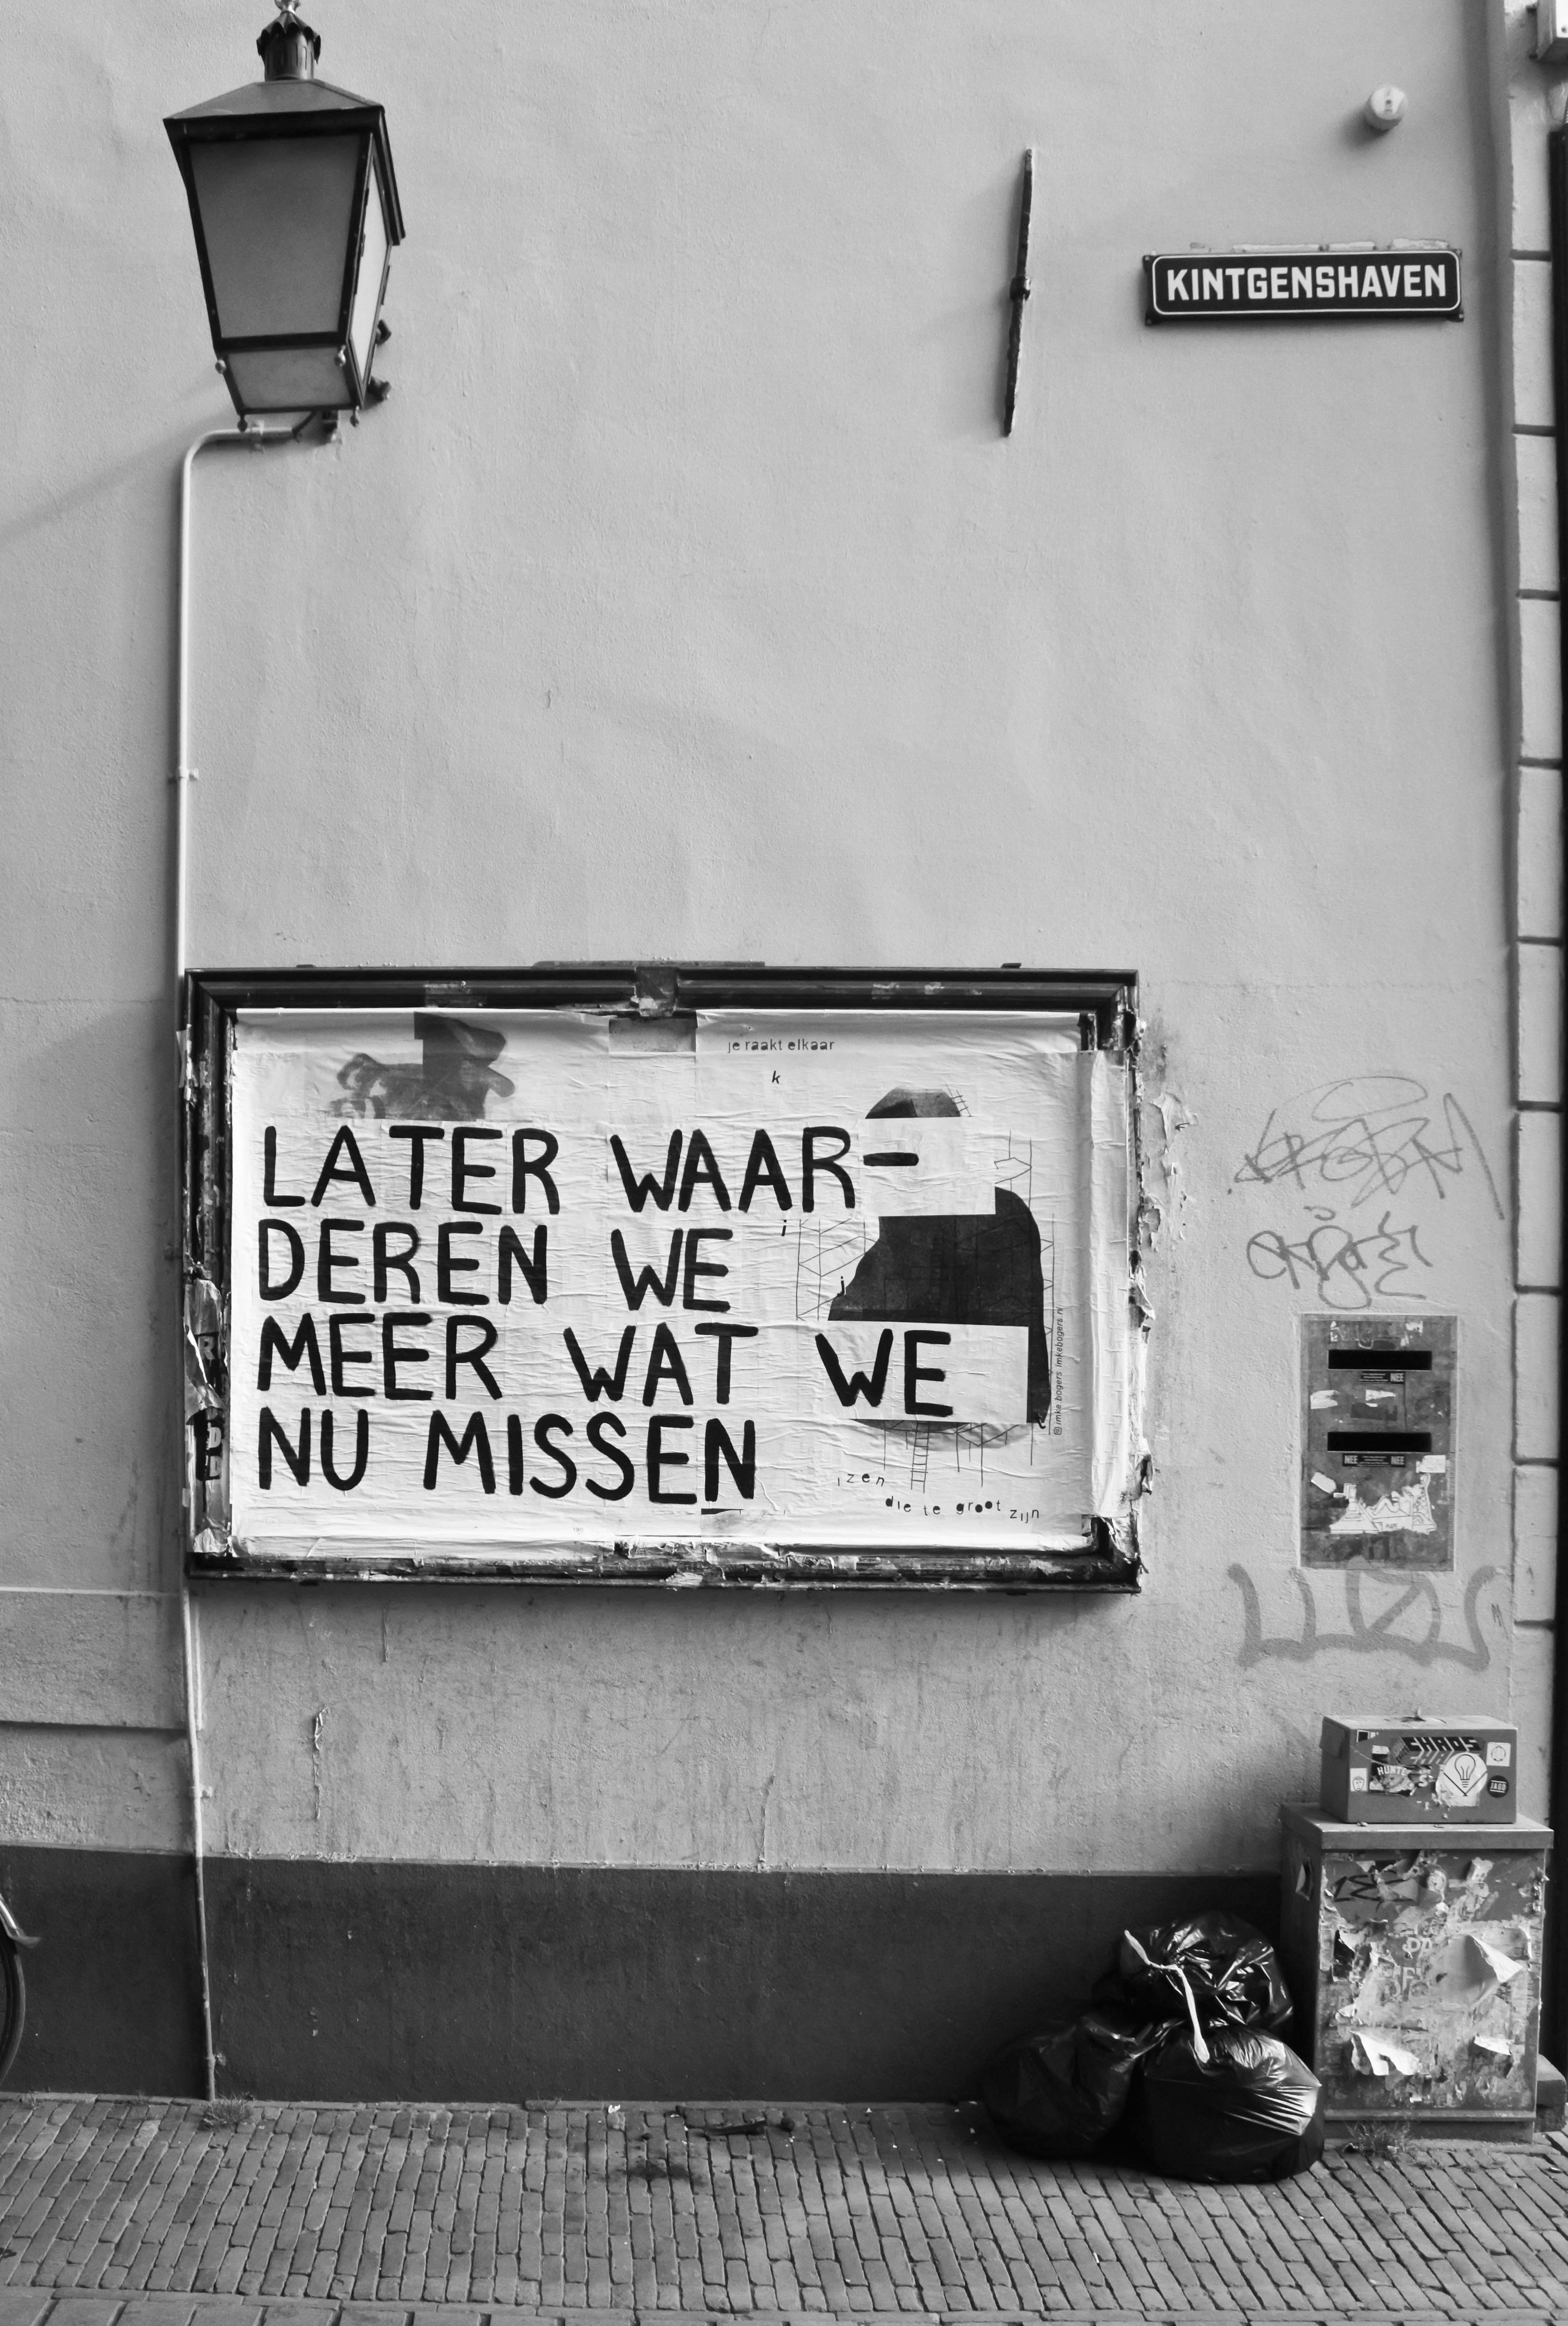 KINTGENSHAVEN
je raakt elkaar
k
LATER WAAR-
DEREN WE
i
j
MEER WAT WE
NU MISSEN
izen
die te groot zijn
© imke bogers imkebogers.nl
NEE
NEE NEE
CHAOS
HUNTE
JAGD